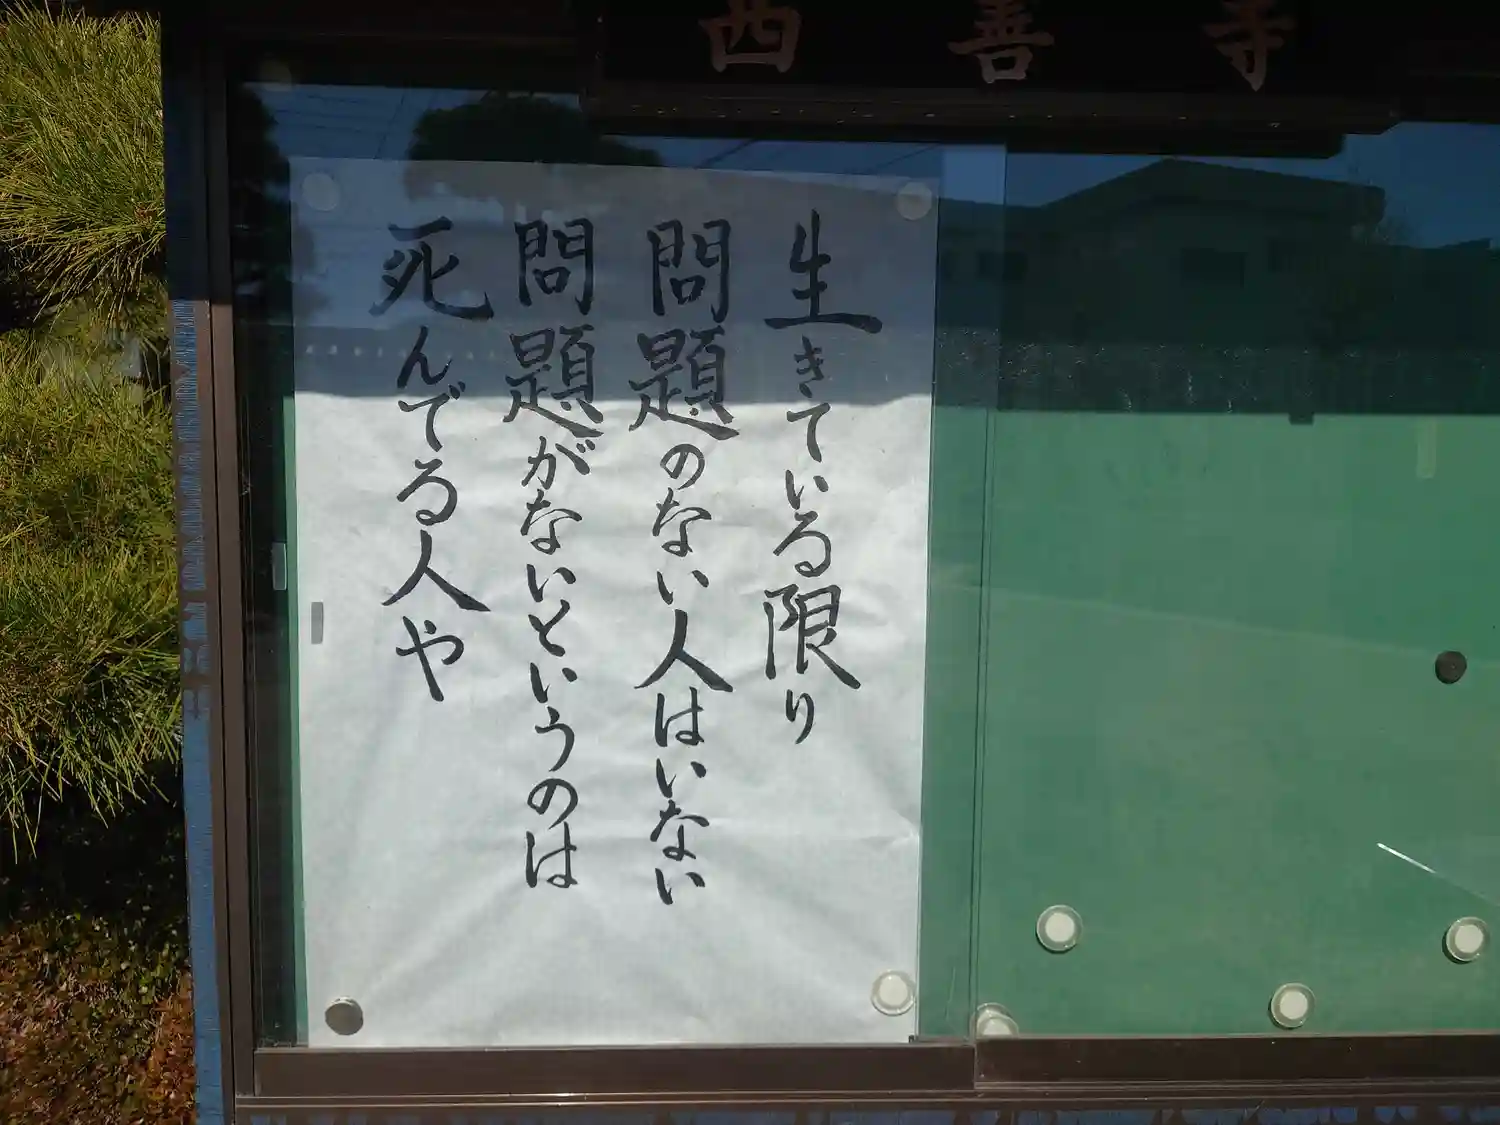 西善寺
生きている限り
問題のない人はいない
問題がないというのは
死んでる人や